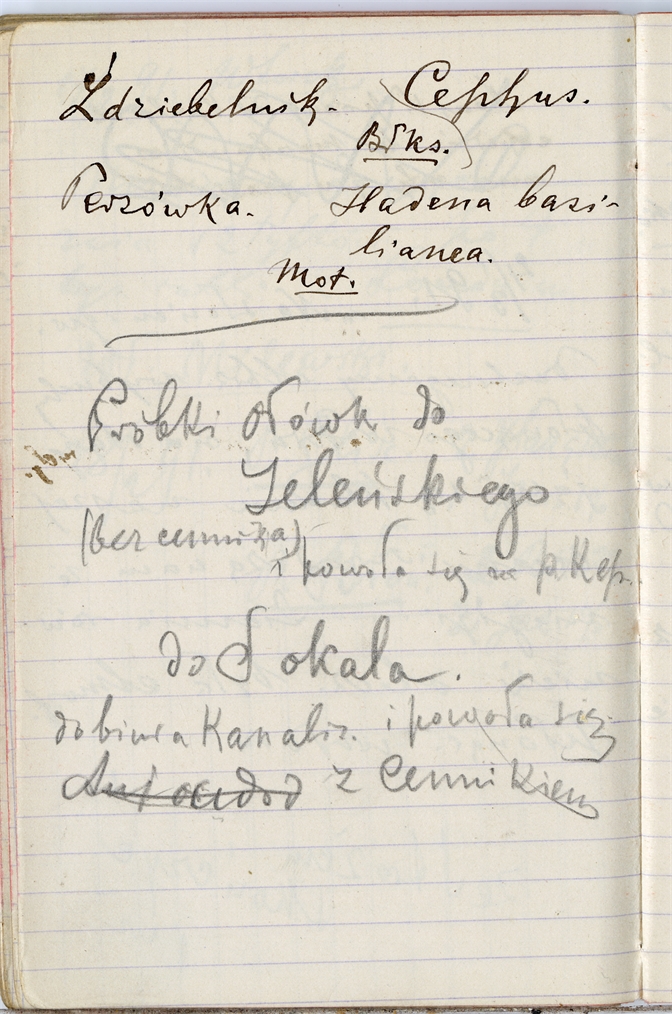 Ździebelnik. Cephus.
Błks.
Perzówka. Hadena basi-
lianea.
Mot.
Próbki ołówk do
Jeleńskiego
(bez cennika)
i powoła się na p. Kep.
do Sokala.
do biura Kanaliz. i powoła się
z Cennikiem